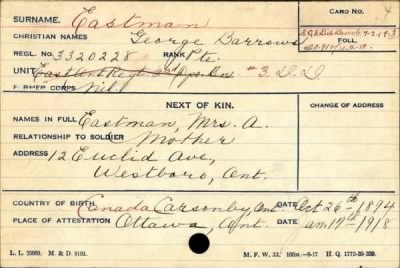 SURNAME. Eastman CARD NO. 4
CHRISTIAN NAMES George Barrows
REGL. NO. 3320228 RANK Pte. FOLL.
UNIT East Ont Regt #3. D.D
FORMER CORPS Nil
NEXT OF KIN. CHANGE OF ADDRESS
NAMES IN FULL Eastman, Mrs. A.
RELATIONSHIP TO SOLDIER Mother
ADDRESS 12 Euclid Ave,
Westboro, Ont.
COUNTRY OF BIRTH Canada Carsonby, Ont DATE Oct 26th 1894
PLACE OF ATTESTATION Ottawa, Ont. DATE Jan. 17th 1918
L. L. 23969. M. & D. 8191. M. F. W. 22. 100M.-8-17 H. Q. 1772-39-339.